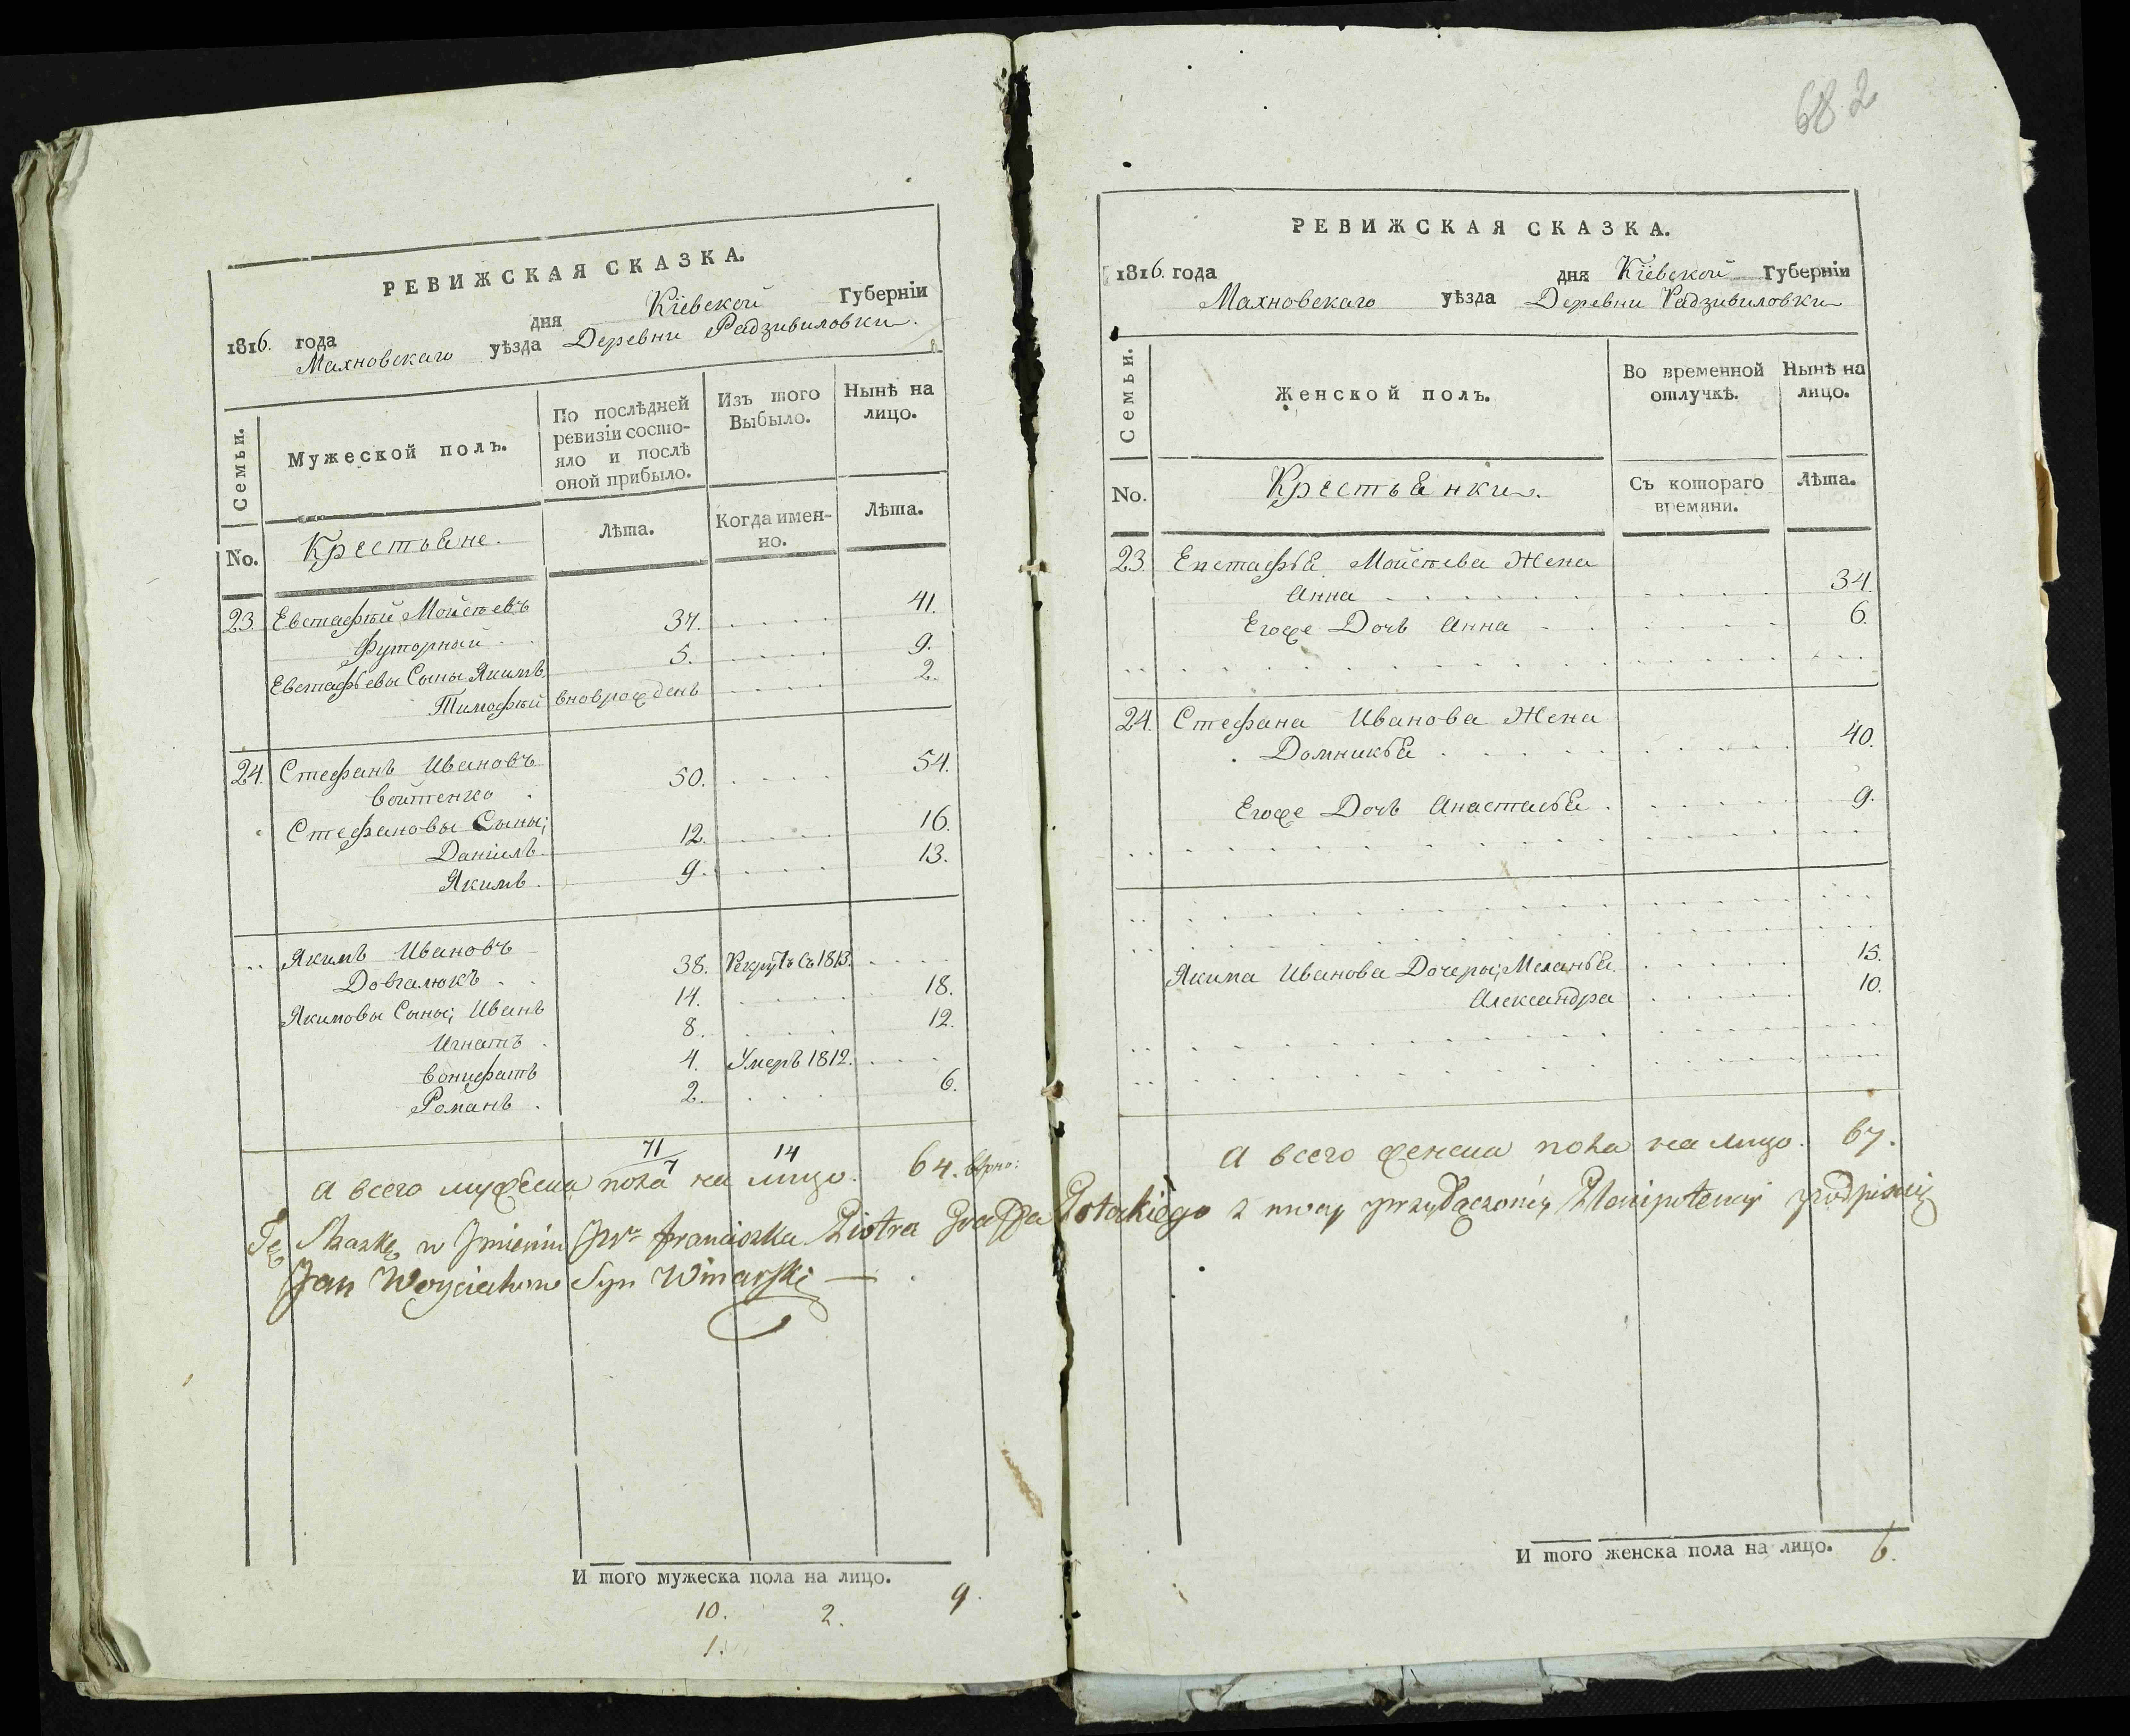 682
РЕВИЖСКАЯ СКАЗКА.
1816. года дня Кіевской Губерніи
Махновскаго уѣзда Деревни Радзивиловки.
Семьи.
Мужеской полъ.
По послѣдней ревизіи состо-
яло и послѣ
оной прибыло.
Изъ того
Выбыло.
Нынѣ на
лицо.
No.
Крестьяне.
Лѣта.
Когда имен-
но.
Лѣта.
23. Евстафій Мойсѣевъ
Футорный . 37. 41.
Евстафьевы Сыны Якимъ 5. 9.
Тимофѣй вноврожденъ 2.
24. Стефанъ Ивановъ
Войтенко . 50. 54.
Стефановы Сыны;
Даніилъ. 12. 16.
Якимъ. 9. 13.
Якимъ Ивановъ
Довгалюкъ . 38. Рекрутъ съ 1813.
Якимовы Сыны; Иванъ 14. 18.
Игнатъ . 8. 12.
Вонифатъ 4. Умеръ 1812.
Романъ . 2. 6.
71 14
7
А всего мужеска пола на лицо. 64. вѣрно:
Tę Skazkę w Jmieniu JWo Franciszka Piotra Graffa Potockiego z mocy przyłączoniy Plenipotencyi podpisuię
Jan Woyciechow Syn Winarski —
И того мужеска пола на лицо.
10. 2. 9.
1.
РЕВИЖСКАЯ СКАЗКА.
1816. года дня Кіевской Губерніи
Махновскаго уѣзда Деревни Радзивиловки
Семьи.
Женской полъ.
Во временной
отлучкѣ.
Нынѣ на
лицо.
No.
Крестьянки.
Съ котораго
времяни.
Лѣта.
23. Евстафья Мойсѣева Жена
Анна 34.
Егоже Дочь Анна 6.
24. Стефана Иванова Жена
Домникья 40.
Егоже Дочь Анастасья . 9.
Якима Иванова Дочеры; Меланья. 15.
Александра 10.
А всего женска пола на лицо. 67.
И того женска пола на лицо. 6.